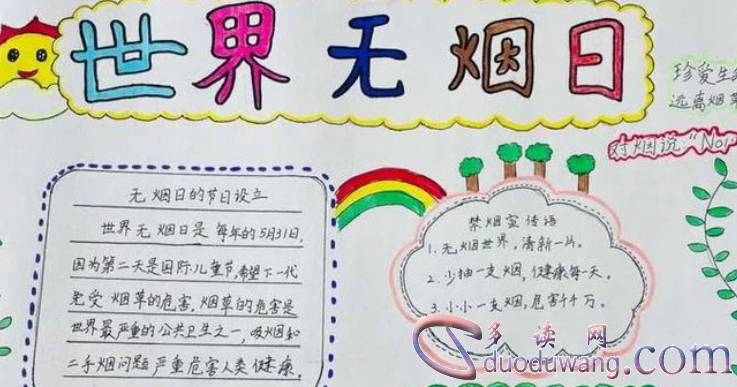 世界无烟日
珍爱生
远离烟草
对烟说:"No!"
无烟日的节日设立
世界无烟日是每年的5月31日,
因为第二天是国际儿童节,希望下一代
免受烟草的危害,烟草的危害是
世界最严重的公共卫生之一,吸烟和
二手烟问题严重危害人类健康。
禁烟宣传语
1.无烟世界,清新一片。
2.少抽一支烟,健康每一天。
3.小小一支烟,危害千千万。
多读网
duoduwang.com